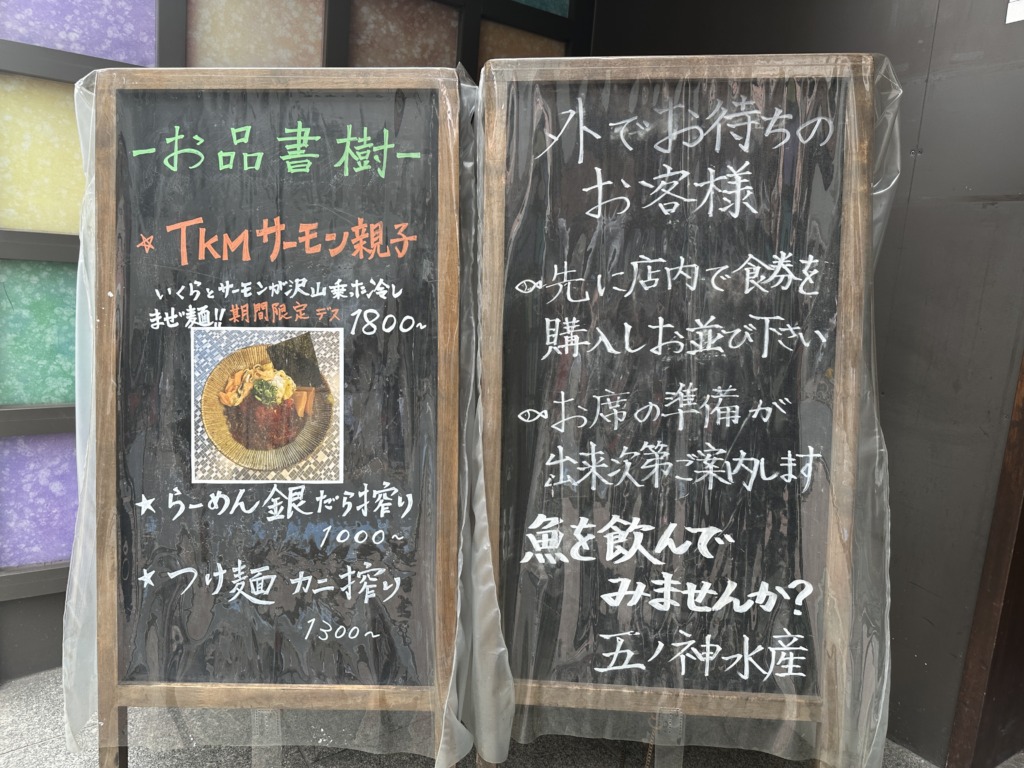 -お品書樹-
☆ TKMサーモン親子
いくらとサーモンが沢山乗ホ冷し
まぜ麺!! 期間限定デス 1800~
★ らーめん 銀だら搾り
1000~
★ つけ麺 カニ搾り
1300~
外でお待ちの
お客様
先に店内で食券を
購入しお並び下さい
お席の準備が
出来次第ご案内します
魚を飲んで
みませんか?
五ノ神水産